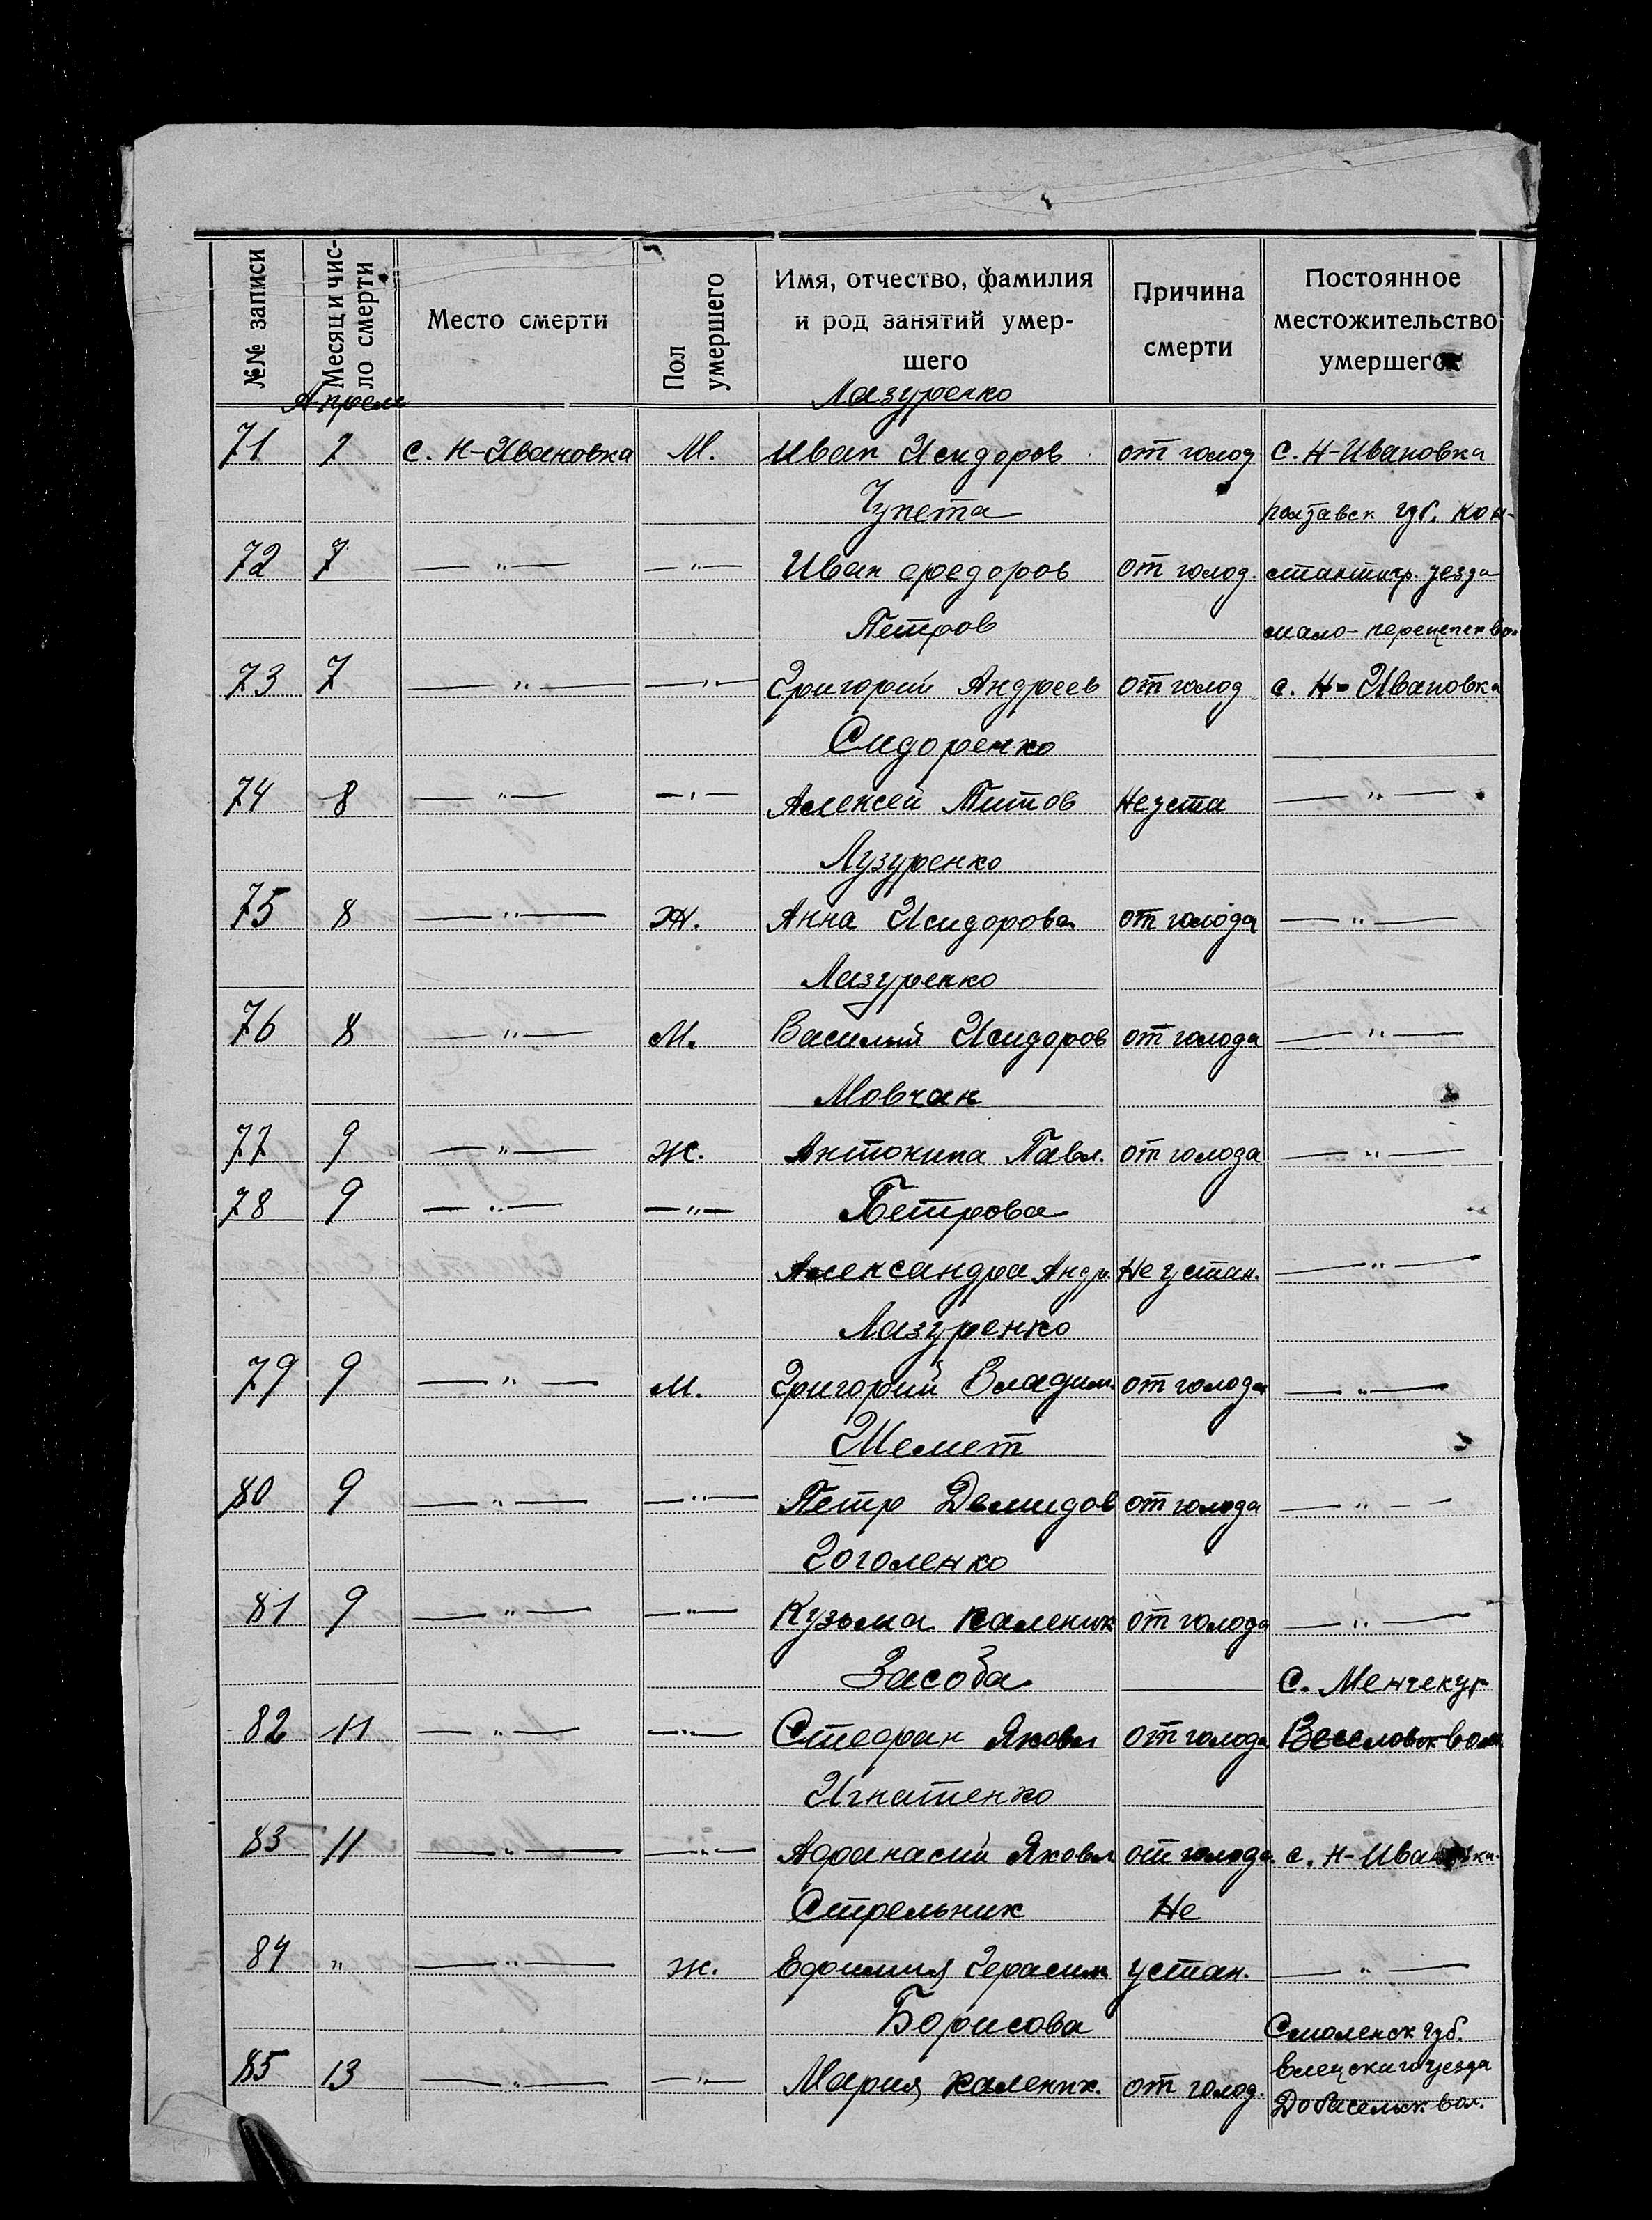 №№ записи
Месяц и чис-
ло смерти
Место смерти
Пол
умершего
Имя, отчество, фамилия
и род занятий умер-
шего
Причина
смерти
Постоянное
местожительство
умершего
Апрель
Лазуренко
71 7 с. Н-Ивановка М. Иван Исидоров от голод с. Н-Ивановка
Чупета Полтавск губ. Кон-
72 7 — " — — " — Иван Федоров от голод. стантигр. уезда
Петров мало-перещепен вол.
73 7 — " — — " — Григорий Андреев от голод с. Н-Ивановка
Сидоренко
74 8 — " — — " — Алексей Титов Неуста — " —
Лузуренко
75 8 — " — Ж. Анна Исидорова от голода — " —
Лазуренко
76 8 — " — М. Василий Исидоров от голода — " —
Мовчан
77 9 — " — Ж. Антонина Павл. от голода — " —
78 9 — " — — " — Петрова
Александра Андр. Не устан. — " —
Лазуренко
79 9 — " — М. Григорий Владим. от голода — " —
Шемет
80 9 — " — — " — Петр Демидов от голода — " —
Гоголенко
81 9 — " — — " — Кузьма Каленик от голода — " —
Засоба С. Менчекур
82 11 — " — — " — Стефан Яковл от голода Веселовск вол.
Игнатенко
83 11 — " — — " — Афанасий Яковл от голода. с. Н-Ивановка.
Стрельник Не
84 " — " — Ж. Ефимия Герасим устан. — " —
Борисова Смоленск губ.
85 13 — " — — " — Мария Каленик. от голод. уезда
вол.